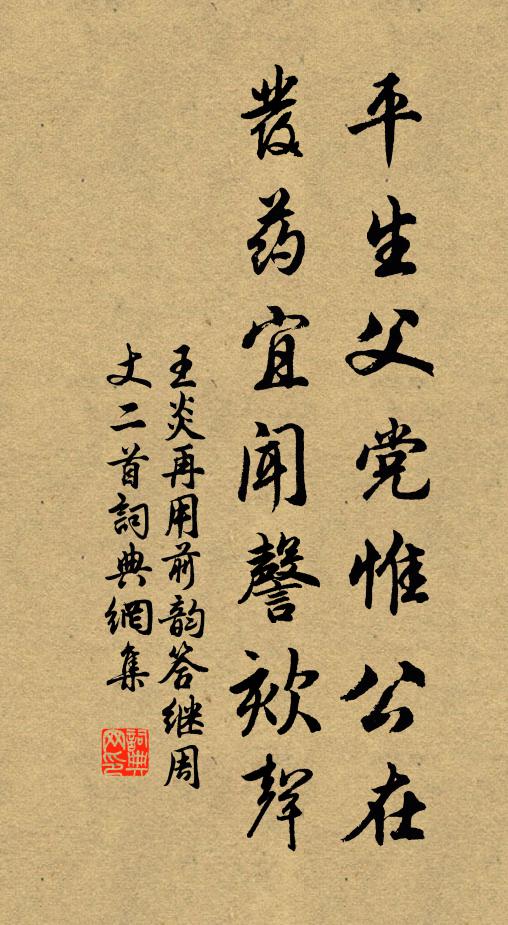 平生父党惟公在
发药宜闻謦欬聲
王炎再用前韵答继周
丈二首詞典網集
詞典网印